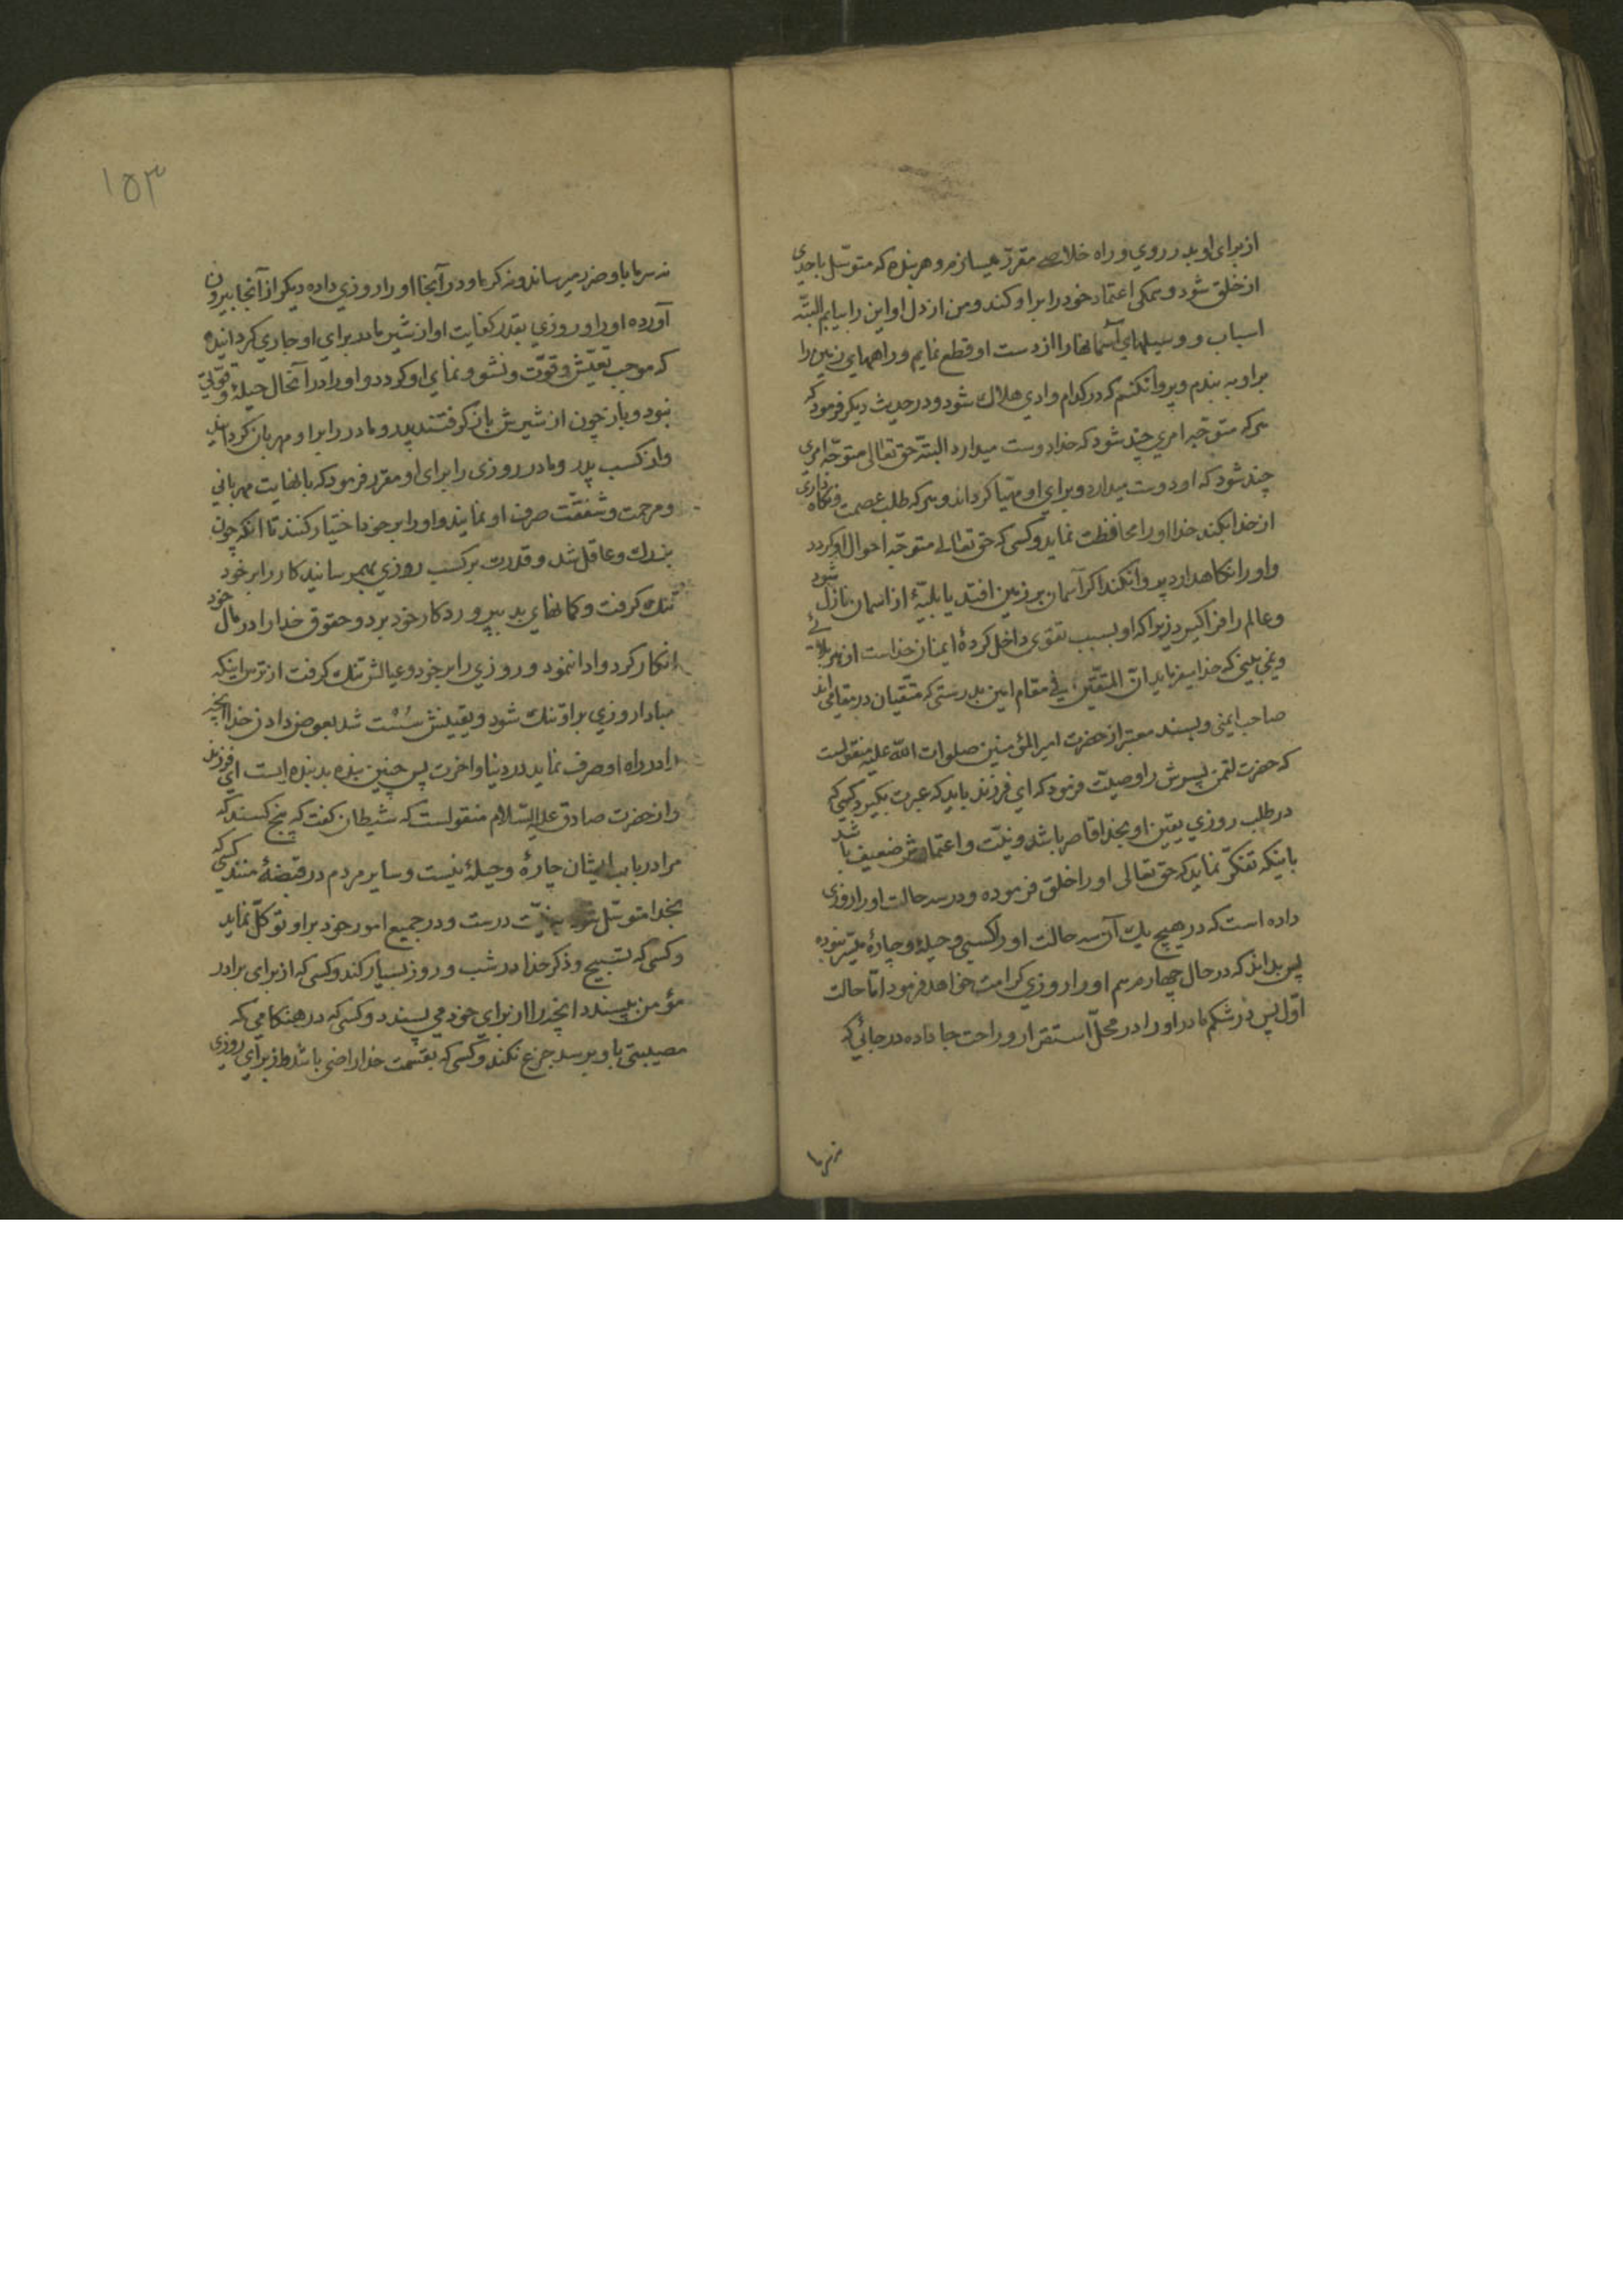 از برای او بدر روی و راه خلاصی مقرر میسازم و هر بنده که متوسل باحدی
از خلق شود و همکی اعتماد خود را بر او کند و من از دل او این را بیابم البته
اسباب و وسیلهای آسمانها را از دست او قطع نمایم و راههای زمین را
بر او به بندم و پروا نکنم که در کدام وادی هلاک شود و در حدیث دیکر فرمود که
هر که متوجه امری چند شود که خدا دوست میدارد البته حق تعالی متوجه امری
چند شود که او دوست میدارد و برای او مهیا کرداند و هر که طلب عصمت و نکاه داری
از خدا بکند خدا او را محافظت نماید و کسی که حق تعالی متوجه احوال او کردد
و او را نکاهدارد پروا نکند اکر آسمان بر زمین افتد یا بلیهٔ از اسمان نازل شود
و عالم را فرا کیرد زیرا که او بسبب تقوی داخل کردهٔ ایمنان خداست از هر بلائے
و نمی بینی که خدا میفرماید ان المتقین فی مقام امین بدرستی که متقیان در مقامی اند
صاحب ایمنی و بسند معتبر از حضرت امیر المؤمنین صلوات الله علیه منقولست
که حضرت لقمن پسرش را وصیت فرمود که ای فرزند باید که عبرت بکیرد کسی که
در طلب روزی یقین او بخدا قاصر باشد و نیت و اعتمادش ضعیف باشد
باینکه تفکر نماید که حق تعالی او را خلق فرموده و در سه حالت او را روزی
داده است که در هیچ یک آن سه حالت او را کسبی و حیلهٔ و چارهٔ میسر نبوده
پس بداند که در حال چهارم هم او را روزی کرامت خواهد فرمود اما حالت
اول پس در شکم مادر او را در محل استقرار و راحت جا داده در جائی که
نه سرما
١٥٣
نه سرما باو ضرر میرساند و نه کرما و در آنجا او را روزی داده دیکر از آنجا بیرون
آورده او را روزی بقدر کفایت او از شیر مادر برای او جاری کردانیده
که موجب تعیش و قوت و نشو و نمای او کردد و او را در آنحال حیلهٔ و قوتی
نبود و باز چون از شیرش باز کرفتند پدر و مادر را بر او مهربان کردانید
و از کسب پدر و مادر روزی را برای او مقرر فرمود که با نهایت مهربانی
و مرحمت و شفقت صرف او نمایند و او را بر خود اختیار کنند تا آنکه چون
بزرک و عاقل شد و قدرت بر کسب روزی بهمرسانید کار را بر خود
تنک کرفت و کمانهای بد بپروردکار خود برد و حقوق خدا را در مال خود
انکار کرد و ادا ننمود و روزی را بر خود و عیالش تنک کرفت از ترس اینکه
مبادا روزی بر او تنک شود و یقینش سست شد بعوض دادن خدا انچه
را در راه او صرف نماید در دنیا و اخرت پس چنین بنده بد بنده ایست ای فرزند
و از حضرت صادق علیه السلام منقولست که شیطان کفت که پنج کسند که
مرا در باب ایشان چارهٔ و حیلهٔ نیست و سایر مردم در قبضهٔ منند کسی که
بخدا متوسل شود به نیت درست و در جمیع امور خود بر او توکل نماید
و کسی که تسبیح و ذکر خدا در شب و روز بسیار کند و کسی که از برای برادر
مؤمن بپسندد انچه را از برای خود می پسندد و کسی که در هنکامی که
مصیبتی باو برسد جزع نکند و کسی که بقسمت خدا راضی باشد و از برای روزی